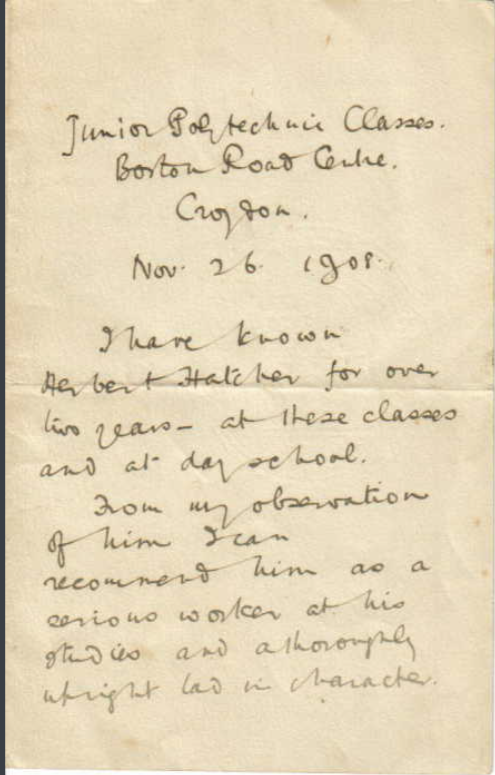 Junior Polytechnic Classes.
Boston Road Centre.
Croydon.
Nov. 26. 1908.
I have known
Herbert Hatcher for over
two years – at these classes
and at day school.
From my observation
of him I can
recommend him as a
serious worker at his
studies and a thoroughly
upright lad in character.